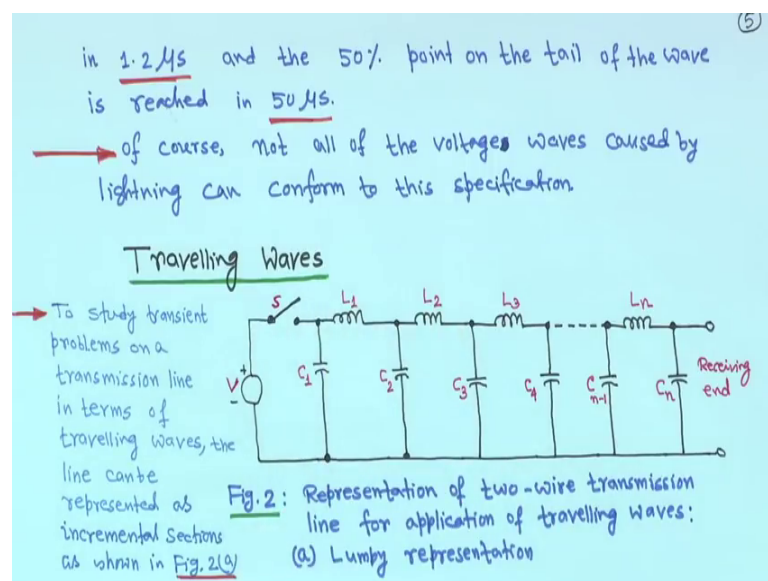 5
in 1.2 μs and the 50% point on the tail of the wave
is reached in 50 μs.
of course, not all of the voltages waves caused by
lightning can conform to this specification.
Travelling Waves
To study transient
problems on a
transmission line
in terms of
travelling waves, the
line can be
represented as
incremental sections
as shown in Fig. 2(a)
S L1 L2 L3 Ln
V + - C1 C2 C3 C4 Cn-1 Cn
Receiving
end
Fig. 2: Representation of two-wire transmission
line for application of travelling waves:
(a) Lumby representation